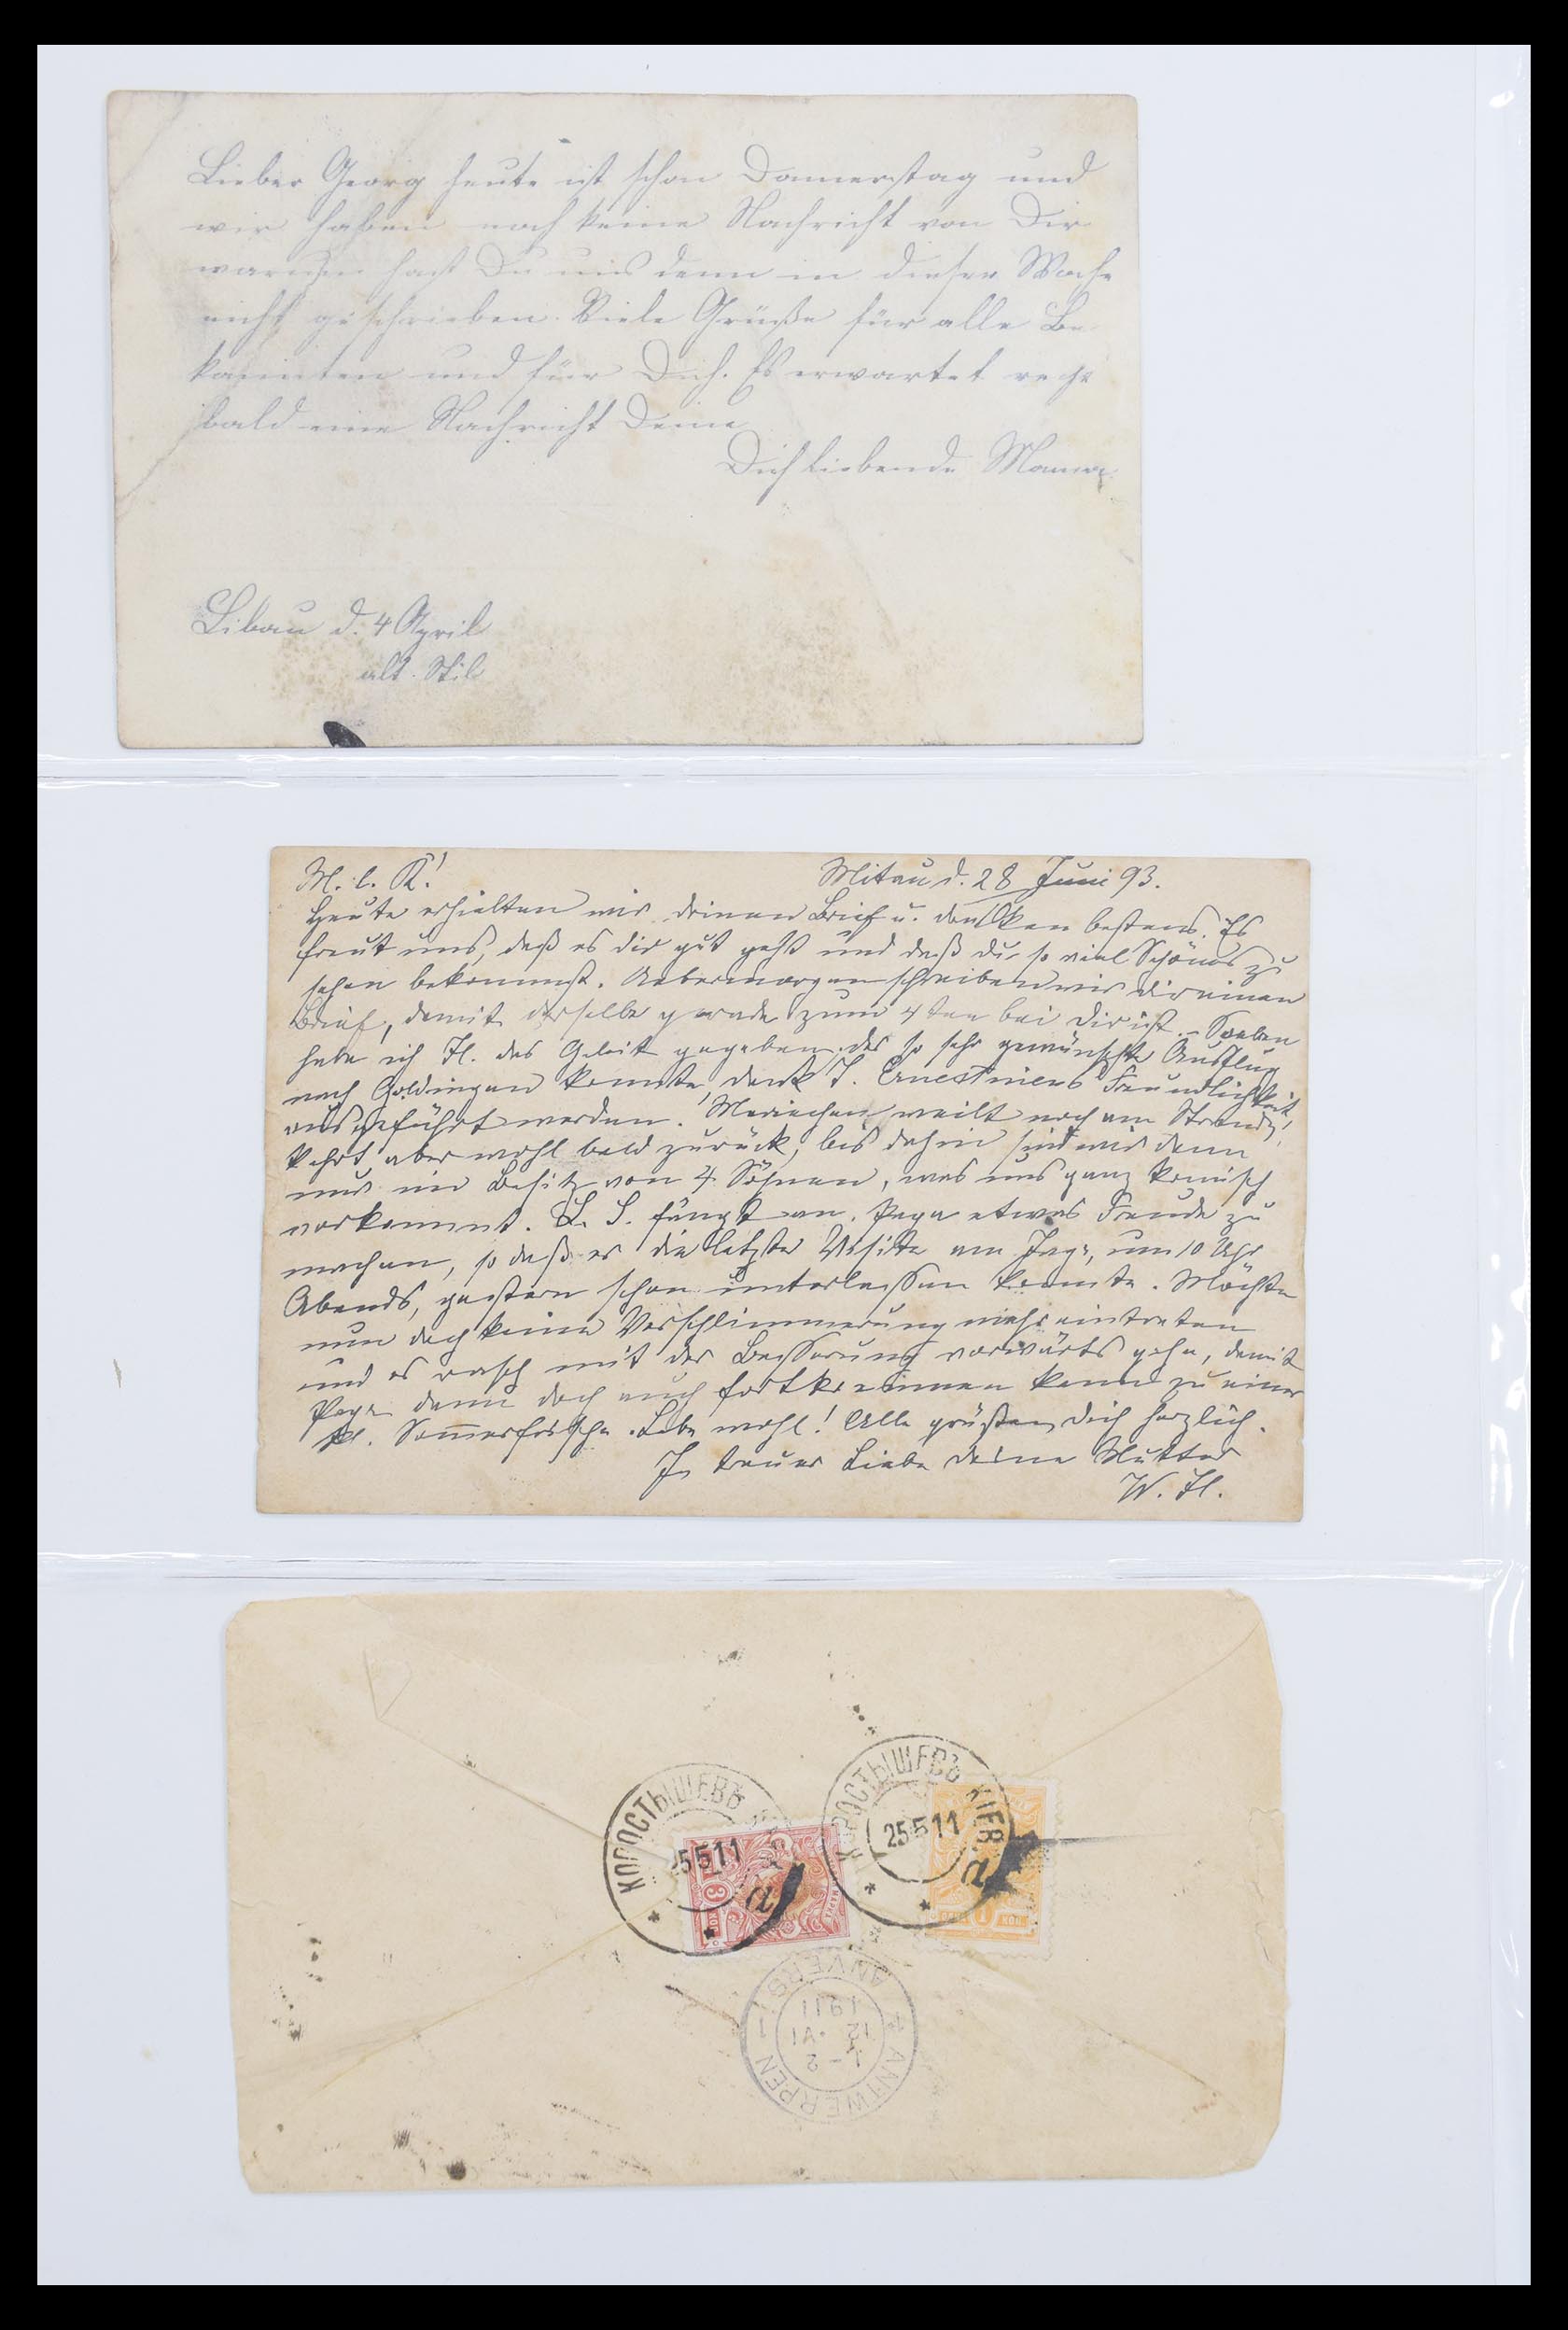 Lieber Georg heute ist schon Donnerstag und
wir haben noch keine Nachricht von Dir
warum hast Du uns denn in dieser Woche
nicht geschrieben. Viele Grüße für alle Be
kannten und für Dich. Es erwartet recht
bald eine Nachricht Deine
Dich liebende Mama
Libau d. 4 April
alt. Stil
M. l. K!
Mitau d. 28 Juni 93.
Heute erhielten wir deinen Brief u. danken bestens. Es
freut uns, daß es dir gut geht und daß du so viel Schönes zu
sehen bekommst. Uebermorgen schreiben wir dir einen
Brief, damit derselbe gerade zum 4ten bei dir ist. - Soeben
habe ich H. das Geleit gegeben, der so sehr gewünschte Ausflug
nach Goldingen konnte, dank T. Ernestinens Freundlichkeit
ausgeführt werden. Mariechen weilt noch am Strande,
kehrt aber wohl bald zurück, bis dahin sind wir denn
nur im Besitz von 4 Söhnen, was uns ganz komisch
vorkommt. fängt an, Papa etwas Freude zu
machen, so daß er die letzte Visite am Tage, um 10 Uhr
Abends, gestern schon unterlassen konnte. Möchte
nun doch keine Verschlimmerung mehr eintreten
und es rasch mit der Besserung vorwärts gehn, damit
Papa denn doch auch fortkommen kann zu einer
kl. Sommerfrische. Lebe wohl! Alle grüßen dich herzlich.
In treuer Liebe deine Mutter
W. H.
КОРОСТЫШЕВЪ КІЕВ.
25 5 11
а
КОРОСТЫШЕВЪ
25 5 11
а
3
1 КОП
ANVERS 1
1911
12 VI
1-2
ANTWERPEN 1